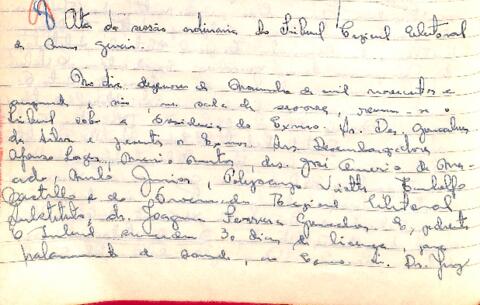 8 Ata da sessão ordinária do Tribunal Regional Eleitoral
de Minas Gerais.
No dia dezenove de Novembro de mil novecentos e
cinquenta e na sala de sessões, reuniu-se o
Tribunal sob a Presidência do Exmo. Sr. Des. Gonçalves
da Silva e presentes os Exmos. Srs. Desembargadores
Afonso Lages, drs. José Américo de
Macedo, Júnior,
e do Procurador Regional Eleitoral
substituto, dr. Joaquim Ferreira Gonçalves.
O Tribunal 30 dias de licença, para
tratamento de saúde, ao Exmo. Sr. Dr. Juiz